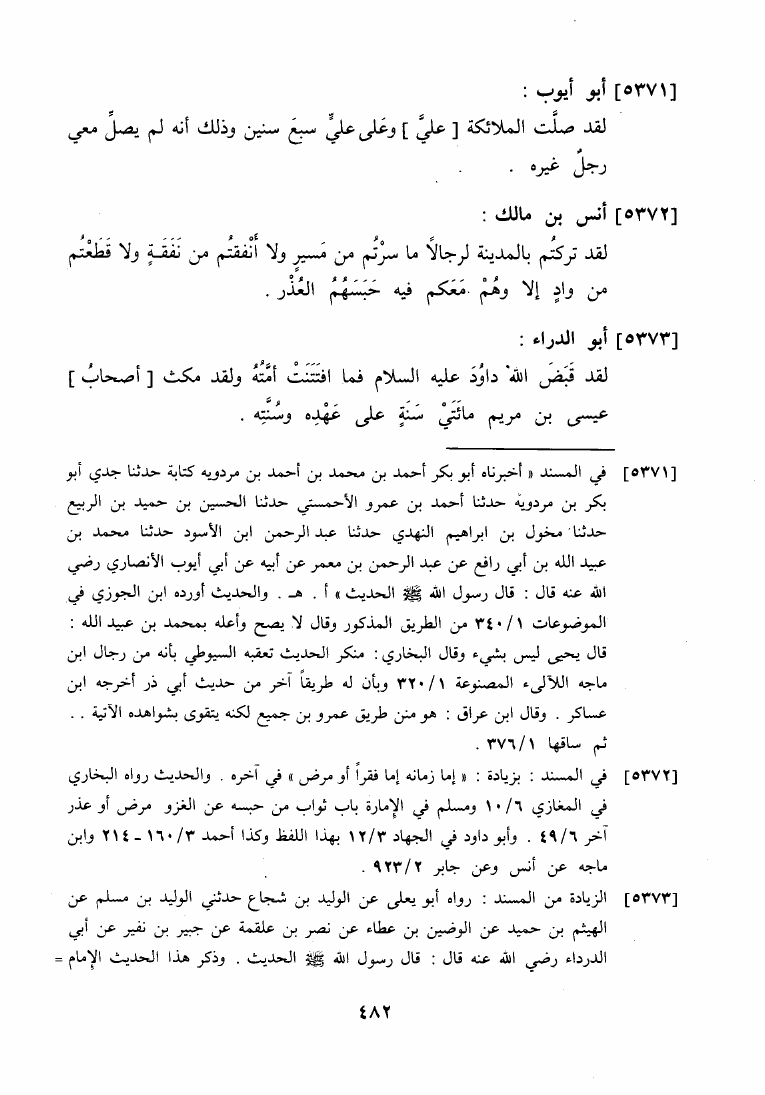 [٥٣٧١] أبو أيوب :
لقد صلَّت الملائكة [ عليَّ ] وعَلى عليٍّ سبعَ سنين وذلك أنه لم يصلِّ معي
رجلٌ غيره .
[٥٣٧٢] أنس بن مالك :
لقد تركتُم بالمدينة لرجالًا ما سرْتُم من مَسيرٍ ولا أَنْفقتُم من نَفَقَـةٍ ولا قَطَعْتُم
من وادٍ إلا وهُمْ مَعَكم فيه حَبَسَهُمُ العُذْر .
[٥٣٧٣] أبو الدراء :
لقد قَبَضَ اللهُ داوُدَ عليه السلام فما افتَتَنَتْ أمَّتُهُ ولقد مكث [ أصحابُ ]
عيسى بن مريم مائَتَيْ سَنَةٍ على عَهْدِه وسُنَّتِه .
[٥٣٧١] في المسند « أخبرناه أبو بكر أحمد بن محمد بن أحمد بن مردويه كتابة حدثنا جدي أبو
بكر بن مردويه حدثنا أحمد بن عمرو الأحمستي حدثنا الحسين بن حميد بن الربيع
حدثنا مخول بن ابراهيم النهدي حدثنا عبد الرحمن ابن الأسود حدثنا محمد بن
عبيد الله بن أبي رافع عن عبد الرحمن بن معمر عن أبيه عن أبي أيوب الأنصاري رضي
الله عنه قال : قال رسول الله ﷺ الحديث » أ . هـ . والحديث أورده ابن الجوزي في
الموضوعات ٣٤٠/١ من الطريق المذكور وقال لا يصح وأعله بمحمد بن عبيد الله :
قال يحيى ليس بشيء وقال البخاري : منكر الحديث تعقبه السيوطي بأنه من رجال ابن
ماجه اللآلىء المصنوعة ٣٢٠/١ وبأن له طريقاً آخر من حديث أبي ذر أخرجه ابن
عساكر . وقال ابن عراق : هو من طريق عمرو بن جميع لكنه يتقوى بشواهده الآتية . .
ثم ساقها ٣٧٦/١ .
[٥٣٧٢] في المسند : بزيادة : « إما زمانه إما فقراً أو مرض » في آخره . والحديث رواه البخاري
في المغازي ١٠/٦ ومسلم في الإمارة باب ثواب من حبسه عن الغزو مرض أو عذر
آخر ٤٩/٦ . وأبو داود في الجهاد ١٢/٣ بهذا اللفظ وكذا أحمد ١٦٠/٣ - ٢١٤ وابن
ماجه عن أنس وعن جابر ٩٢٣/٢ .
[٥٣٧٣] الزيادة من المسند : رواه أبو يعلى عن الوليد بن شجاع حدثني الوليد بن مسلم عن
الهيثم بن حميد عن الوضين بن عطاء عن نصر بن علقمة عن جبير بن نفير عن أبي
الدرداء رضي الله عنه قال : قال رسول الله ﷺ الحديث . وذكر هذا الحديث الإمام =
٤٨٢